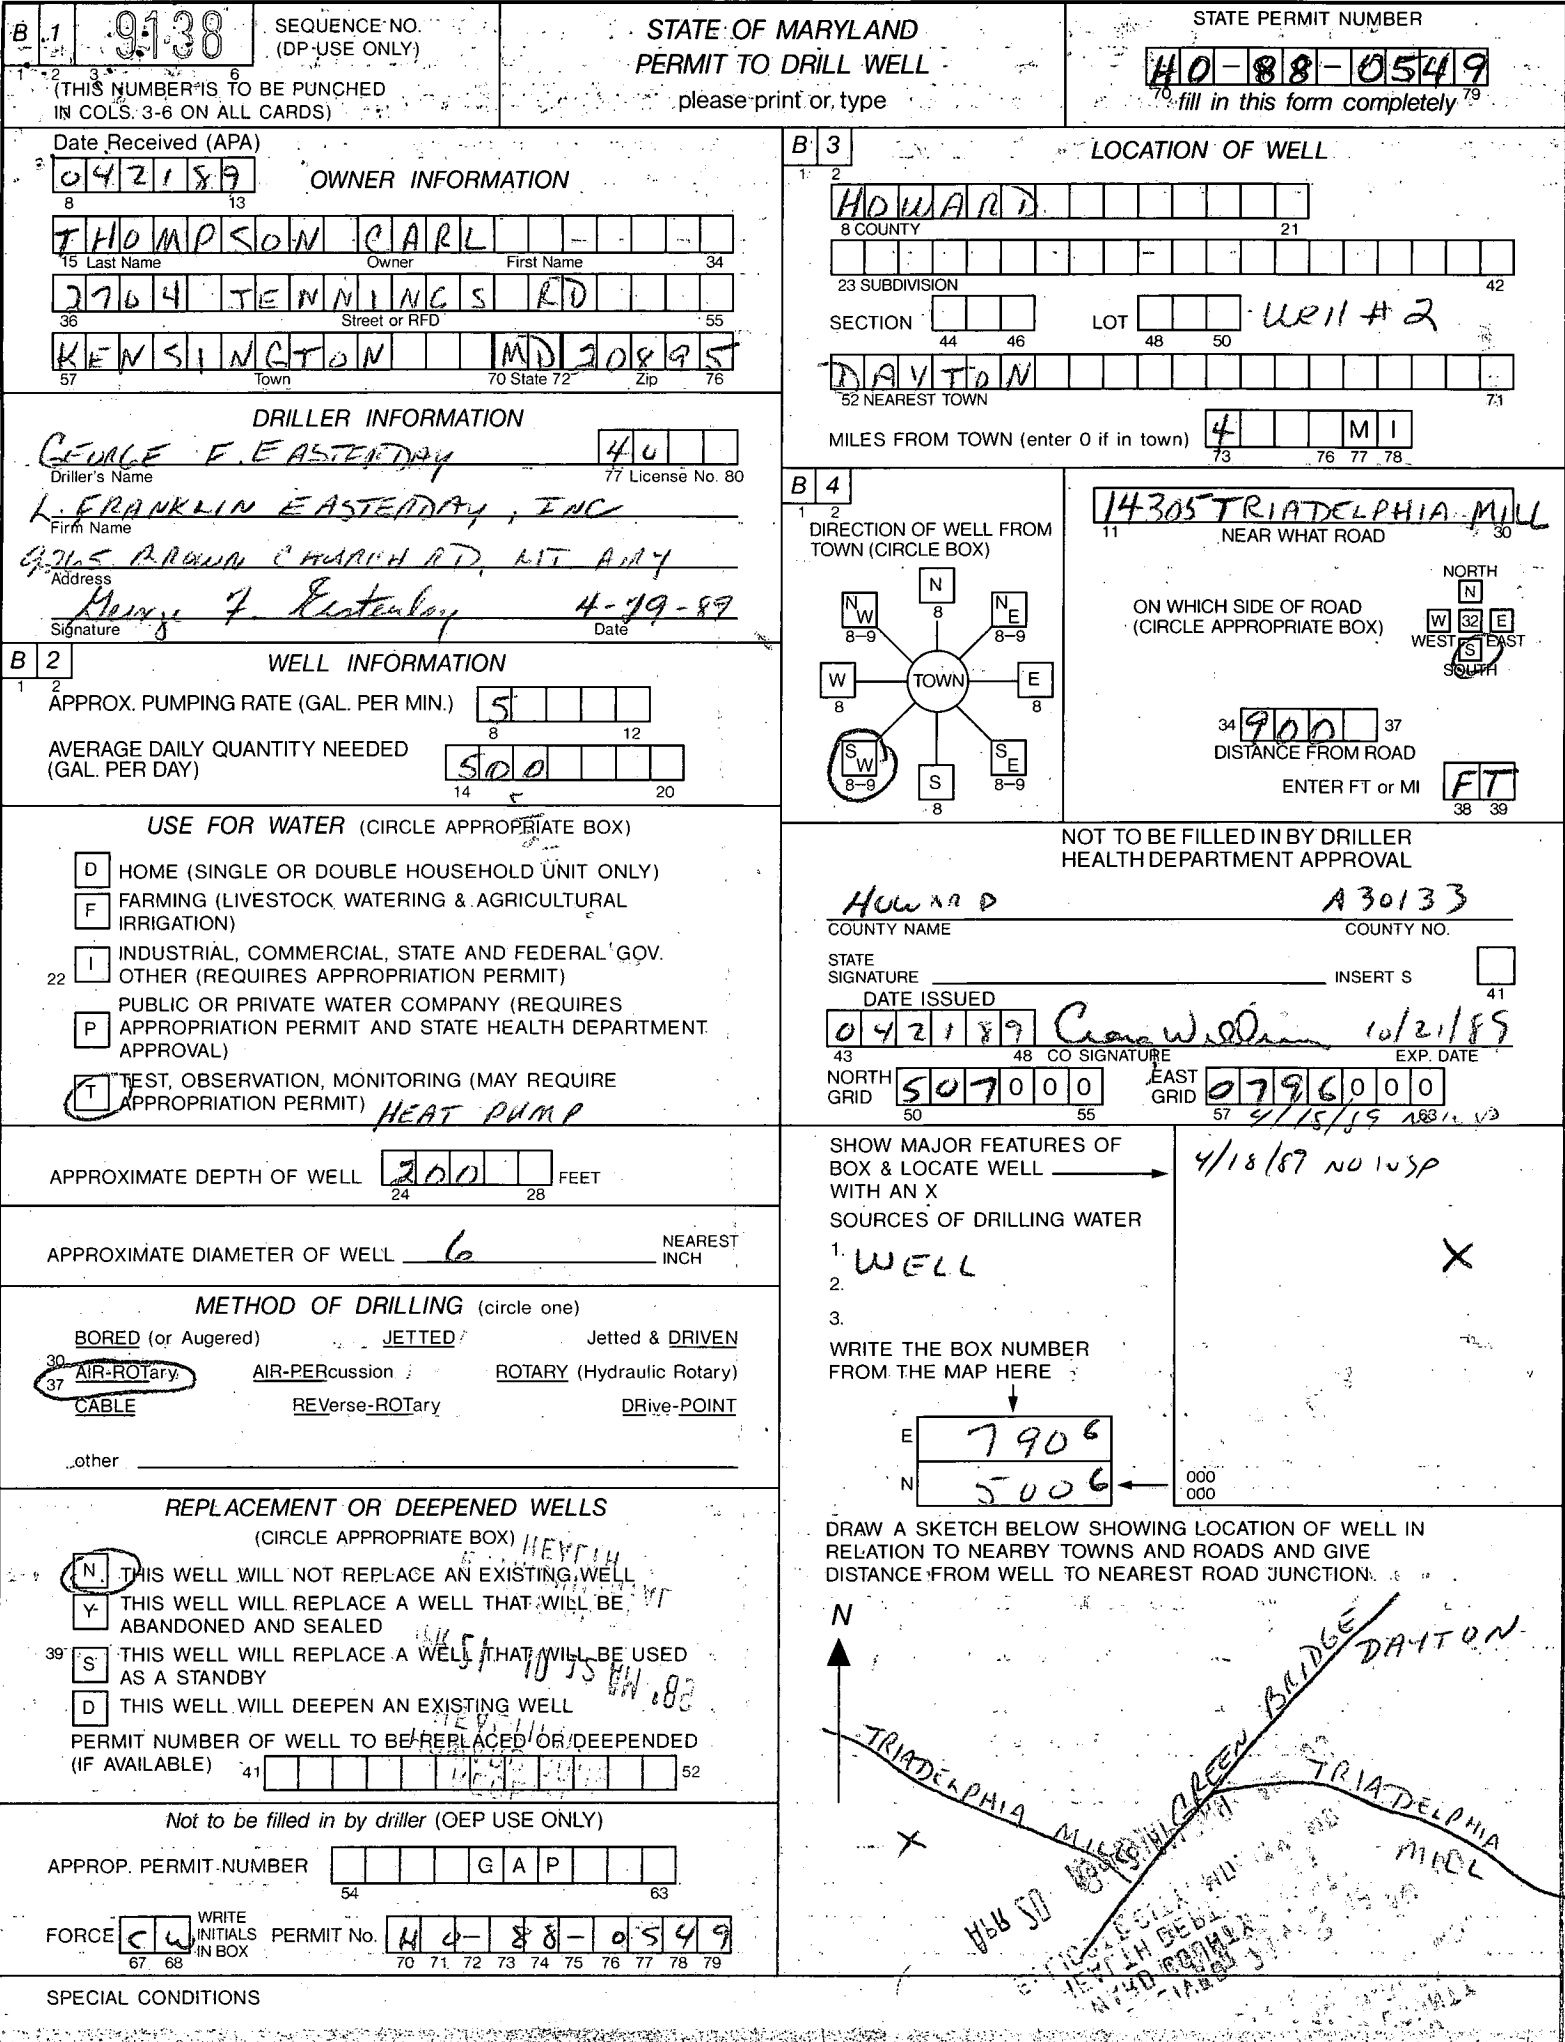 B 1 9138
SEQUENCE NO.
(DP USE ONLY)
1 2 3 6
(THIS NUMBER IS TO BE PUNCHED
IN COLS. 3-6 ON ALL CARDS)
STATE OF MARYLAND
PERMIT TO DRILL WELL
please print or type
STATE PERMIT NUMBER
HO-88-0549
70 fill in this form completely 79
Date Received (APA)
042189
8 13
OWNER INFORMATION
THOMPSON CARL
15 Last Name Owner First Name 34
2704 JENNINGS RD
36 Street or RFD 55
KENSINGTON MD 20895
57 Town 70 State 72 Zip 76
DRILLER INFORMATION
GEORGE F. EASTERDAY 40
Driller's Name 77 License No. 80
L. FRANKLIN EASTERDAY, INC
Firm Name
9265 BROWN CHURCH RD. MT AIRY
Address
George F. Easterday 4-19-89
Signature Date
B 2
1 2
WELL INFORMATION
APPROX. PUMPING RATE (GAL. PER MIN.) 5
8 12
AVERAGE DAILY QUANTITY NEEDED
(GAL. PER DAY) 500
14 20
USE FOR WATER (CIRCLE APPROPRIATE BOX)
D HOME (SINGLE OR DOUBLE HOUSEHOLD UNIT ONLY)
F FARMING (LIVESTOCK WATERING & AGRICULTURAL
IRRIGATION)
22 I INDUSTRIAL, COMMERCIAL, STATE AND FEDERAL GOV.
OTHER (REQUIRES APPROPRIATION PERMIT)
P PUBLIC OR PRIVATE WATER COMPANY (REQUIRES
APPROPRIATION PERMIT AND STATE HEALTH DEPARTMENT
APPROVAL)
T TEST, OBSERVATION, MONITORING (MAY REQUIRE
APPROPRIATION PERMIT) HEAT PUMP
APPROXIMATE DEPTH OF WELL 200 FEET
24 28
APPROXIMATE DIAMETER OF WELL 6 NEAREST
INCH
METHOD OF DRILLING (circle one)
BORED (or Augered) JETTED Jetted & DRIVEN
30
37 AIR-ROTary AIR-PERcussion ROTARY (Hydraulic Rotary)
CABLE REVerse-ROTary DRive-POINT
other
REPLACEMENT OR DEEPENED WELLS
(CIRCLE APPROPRIATE BOX) HEALTH
N THIS WELL WILL NOT REPLACE AN EXISTING WELL
Y THIS WELL WILL REPLACE A WELL THAT WILL BE
ABANDONED AND SEALED
39 S THIS WELL WILL REPLACE A WELL THAT WILL BE USED
AS A STANDBY
D THIS WELL WILL DEEPEN AN EXISTING WELL
PERMIT NUMBER OF WELL TO BE REPLACED OR DEEPENED
(IF AVAILABLE) 41 52
Not to be filled in by driller (OEP USE ONLY)
APPROP. PERMIT NUMBER GAP
54 63
FORCE CW WRITE
INITIALS
IN BOX PERMIT No. HO-88-0549
67 68 70 71 72 73 74 75 76 77 78 79
SPECIAL CONDITIONS
B 3
1 2
LOCATION OF WELL
HOWARD
8 COUNTY 21
23 SUBDIVISION 42
SECTION LOT Well #2
44 46 48 50
DAYTON
52 NEAREST TOWN 71
MILES FROM TOWN (enter 0 if in town) 4 MI
73 76 77 78
B 4
1 2
DIRECTION OF WELL FROM
TOWN (CIRCLE BOX)
N
8
NW
8-9
NE
8-9
W
8
TOWN
E
8
SW
8-9
S
8
SE
8-9
14305 TRIADELPHIA MILL
11 NEAR WHAT ROAD 30
ON WHICH SIDE OF ROAD
(CIRCLE APPROPRIATE BOX)
NORTH
N
W 32 E
WEST S EAST
SOUTH
34 900 37
DISTANCE FROM ROAD
ENTER FT or MI FT
38 39
NOT TO BE FILLED IN BY DRILLER
HEALTH DEPARTMENT APPROVAL
HOWARD A30133
COUNTY NAME COUNTY NO.
STATE
SIGNATURE INSERT S
41
DATE ISSUED
042189 Craig William 10/21/89
43 48 CO SIGNATURE EXP. DATE
NORTH
GRID 507000 EAST
GRID 0796000
50 55 57 63
4/15/89
SHOW MAJOR FEATURES OF
BOX & LOCATE WELL
WITH AN X
4/18/89 NO INSP
X
SOURCES OF DRILLING WATER
1. WELL
2.
3.
WRITE THE BOX NUMBER
FROM THE MAP HERE
E 7906
N 5006
000
000
DRAW A SKETCH BELOW SHOWING LOCATION OF WELL IN
RELATION TO NEARBY TOWNS AND ROADS AND GIVE
DISTANCE FROM WELL TO NEAREST ROAD JUNCTION
N
DAYTON
GREEN BRIDGE
TRIADELPHIA MILL
TRIADELPHIA
MILL
X
APR 20